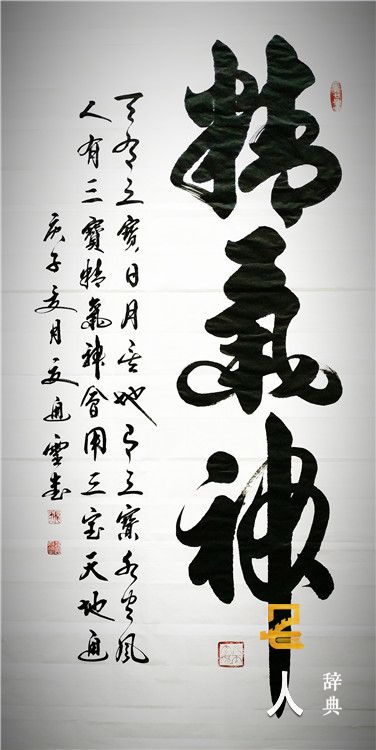 精氣神
天有三寶日月星地有三寶水火風
人有三寶精氣神會用三宝天地通
庚子夏月夏通雲書
名人
辞典